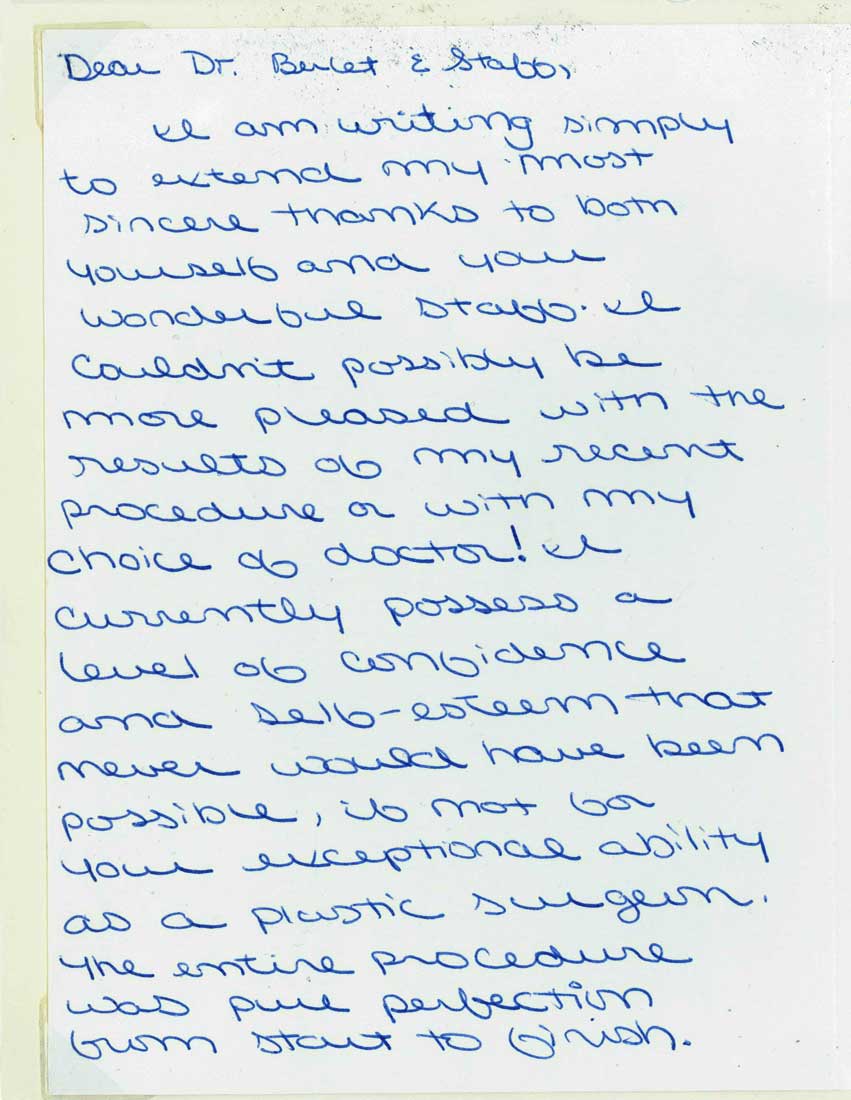 Dear Dr. Berlet & Staff,
I am writing simply
to extend my most
sincere thanks to both
yourself and your
wonderful staff. I
couldn't possibly be
more pleased with the
results of my recent
procedure or with my
choice of doctor! I
currently possess a
level of confidence
and self-esteem that
never would have been
possible, if not for
your exceptional ability
as a plastic surgeon.
The entire procedure
was pure perfection
from start to finish.